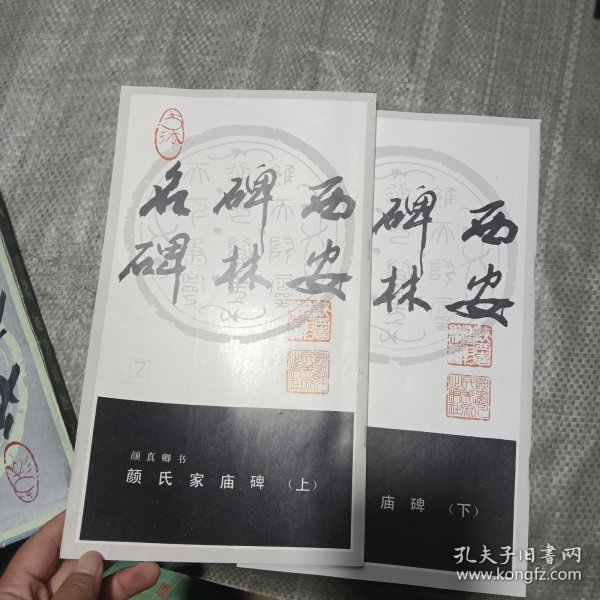 西安
碑林
名碑
7
颜真卿书
颜氏家庙碑（上）
西安
碑林
庙碑（下）
孔夫子旧书网
www.kongfz.com